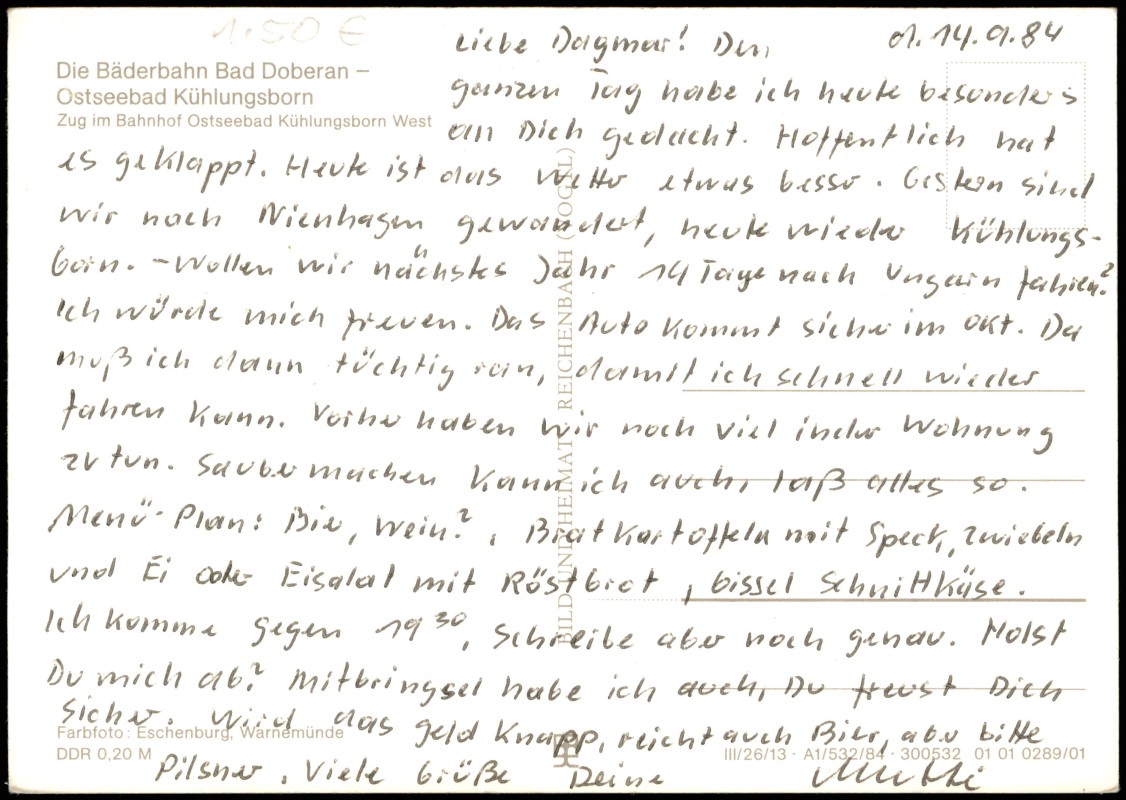 1.50 €
Die Bäderbahn Bad Doberan –
Ostseebad Kühlungsborn
Zug im Bahnhof Ostseebad Kühlungsborn West
d. 14.9.84
Liebe Dagmar! Den
ganzen Tag habe ich heute besonders
an Dich gedacht. Hoffentlich hat
es geklappt. Heute ist das Wetter etwas besser. Gestern sind
wir nach Nienhagen gewandert, heute wieder Kühlungs-
born. – Wollen wir nächstes Jahr 14 Tage nach Ungarn fahren?
Ich würde mich freuen. Das Auto kommt sicher im Okt. Da
muß ich dann tüchtig ran, damit ich schnell wieder
fahren kann. Vorher haben wir noch viel in der Wohnung
zu tun. Sauber machen kann ich auch, laß alles so.
Menü-Plan: Bier, Wein?, Bratkartoffeln mit Speck, Zwiebeln
und Ei oder Eisalat mit Röstbrot, bissel Schnittkäse.
Ich komme gegen 19 30, schreibe aber noch genau. Holst
Du mich ab? Mitbringsel habe ich auch, Du freust Dich
sicher. Wird das Geld knapp, reicht auch Bier, aber bitte
Pilsner. Viele Grüße Deine Mutti
BILD UND HEIMAT REICHENBACH (VOGTL)
Farbfoto: Eschenburg, Warnemünde
DDR 0,20 M
III/26/13 · A1/532/84 · 300532 01 01 0289/01